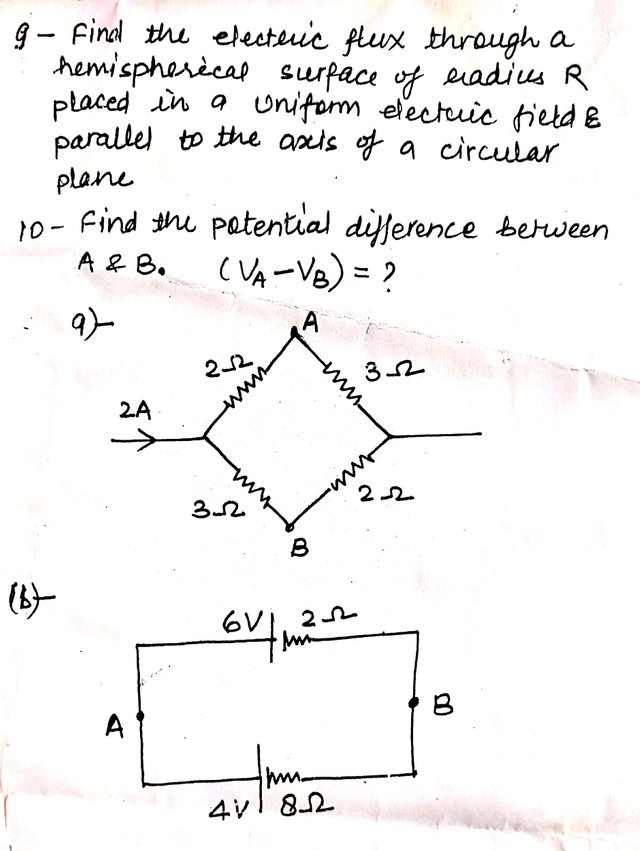 9- Find the electric flux through a
hemispherical surface of radius R
placed in a uniform electric field E
parallel to the axis of a circular
plane
10- Find the potential difference between
A & B. (VA-VB) = ?
a)-
A
2Ω 3Ω
2A
3Ω 2Ω
B
(b)-
6V 2Ω
A B
4V 8Ω